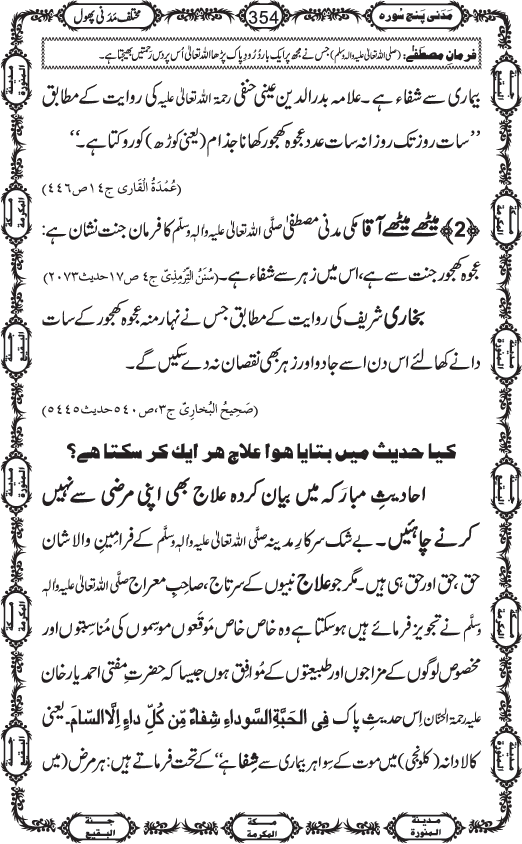 مَدَنی پَنج سُورہ
354
مختلف مَدَنی پھول
فرمانِ مصطَفٰے: (صلی اللہ تعالیٰ علیہ والہ وسلم) جس نے مجھ پر ایک بار دُرُودِ پاک پڑھا اللہ تعالیٰ اُس پر دس رحمتیں بھیجتا ہے۔
بیماری سے شفاء ہے۔ علامہ بدرالدین عینی حنفی رحمۃ اللہ تعالیٰ علیہ کی روایت کے مطابق
’’سات روز تک روزانہ سات عدد عجوہ کھجور کھانا جذام (یعنی کوڑھ) کو روکتا ہے۔‘‘
(عُمْدَۃُ الْقَاری ج۱۴ص۴۴۶)
﴿2﴾ میٹھے میٹھے آقا مکی مدنی مصطفٰی صلَّی اللہ تعالیٰ علیہ واٰلہٖ وسلَّم کا فرمان جنت نشان ہے:
عجوہ کھجور جنت سے ہے، اس میں زہر سے شفاء ہے۔ (سُنَنُ التِّرمِذِیّ ج٤ ص۱۷حدیث۲۰۷۳)
بخاری شریف کی روایت کے مطابق جس نے نہار منہ عجوہ کھجور کے سات
دانے کھا لئے اس دن اسے جادو اور زہر بھی نقصان نہ دے سکیں گے۔
(صَحِیحُ البُخارِیّ ج۳،ص۵۴۰حدیث۵۴۴۵)
کیا حدیث میں بتایا ھوا علاج ھر ایک کر سکتا ھے؟
احادیثِ مبارَکہ میں بیان کردہ علاج بھی اپنی مرضی سے نہیں
کرنے چاہئیں۔ بے شک سرکارِ مدینہ صلَّی اللہ تعالیٰ علیہ واٰلہٖ وسلَّم کے فرامین والا شان
حق، حق اور حق ہی ہیں۔ مگر جو علاج نبیوں کے سرتاج، صاحِبِ معراج صلَّی اللہ تعالیٰ علیہ واٰلہٖ
وسلَّم نے تجویز فرمائے ہیں ہو سکتا ہے وہ خاص خاص مَوقَعوں موسِموں کی مُناسَبَتوں اور
مخصوص لوگوں کے مزاجوں اور طبیعتوں کے مُوافِق ہوں جیسا کہ حضرتِ مفتی احمد یار خان
علیہ رحمۃ الحنّان اِس حدیثِ پاک فِی الْحَبَّۃِ السَّوداءِ شِفاءٌ مِّن کُلِّ داءٍ اِلَّا السَّام۔ یعنی
کالا دانہ (کلونجی) میں موت کے سِوا ہر بیماری سے شِفا ہے‘‘ کے تحت فرماتے ہیں: ہر مرض (میں
مدینۃ المنورۃ
مکۃ المکرمۃ
جنۃ البقیع
مدینۃ المنورۃ
مکۃ المکرمۃ
جنۃ البقیع
جنۃ البقیع
مکۃ المکرمۃ
مدینۃ المنورۃ
جنۃ البقیع
مکۃ المکرمۃ
مدینۃ المنورۃ
جنۃ البقیع
مکۃ المکرمۃ
مدینۃ المنورۃ